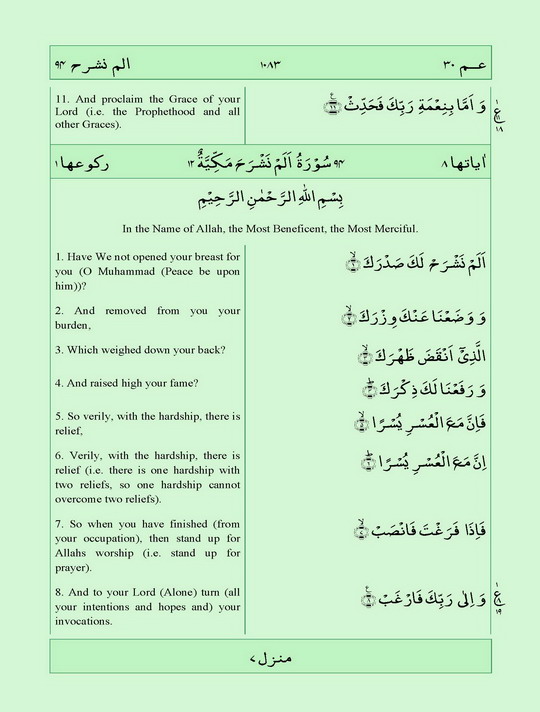 الم نشرح ۹۴ ۱۰۸۳ عـــم ۳۰
11. And proclaim the Grace of your
Lord (i.e. the Prophethood and all
other Graces).
وَ اَمَّا بِنِعْمَةِ رَبِّكَ فَحَدِّثْ ۱۱
ع
۱۸
اٰياتها ۸ ۹۴ سُوْرَةُ اَلَمْ نَشْرَحْ مَكِّيَّةٌ ۱۲ ركوعها ۱
بِسْمِ اللّٰهِ الرَّحْمٰنِ الرَّحِيْمِ
In the Name of Allah, the Most Beneficent, the Most Merciful.
1. Have We not opened your breast for
you (O Muhammad (Peace be upon
him))?
اَلَمْ نَشْرَحْ لَكَ صَدْرَكَ ۱
2. And removed from you your
burden,
وَ وَضَعْنَا عَنْكَ وِزْرَكَ ۲
3. Which weighed down your back?
الَّذِیْۤ اَنْقَضَ ظَهْرَكَ ۳
4. And raised high your fame?
وَ رَفَعْنَا لَكَ ذِكْرَكَ ۴
5. So verily, with the hardship, there is
relief,
فَاِنَّ مَعَ الْعُسْرِ يُسْرًا ۵
6. Verily, with the hardship, there is
relief (i.e. there is one hardship with
two reliefs, so one hardship cannot
overcome two reliefs).
اِنَّ مَعَ الْعُسْرِ يُسْرًا ۶
7. So when you have finished (from
your occupation), then stand up for
Allahs worship (i.e. stand up for
prayer).
فَاِذَا فَرَغْتَ فَانْصَبْ ۷
8. And to your Lord (Alone) turn (all
your intentions and hopes and) your
invocations.
وَ اِلٰى رَبِّكَ فَارْغَبْ ۸
ع
۱۹
منزل ۷